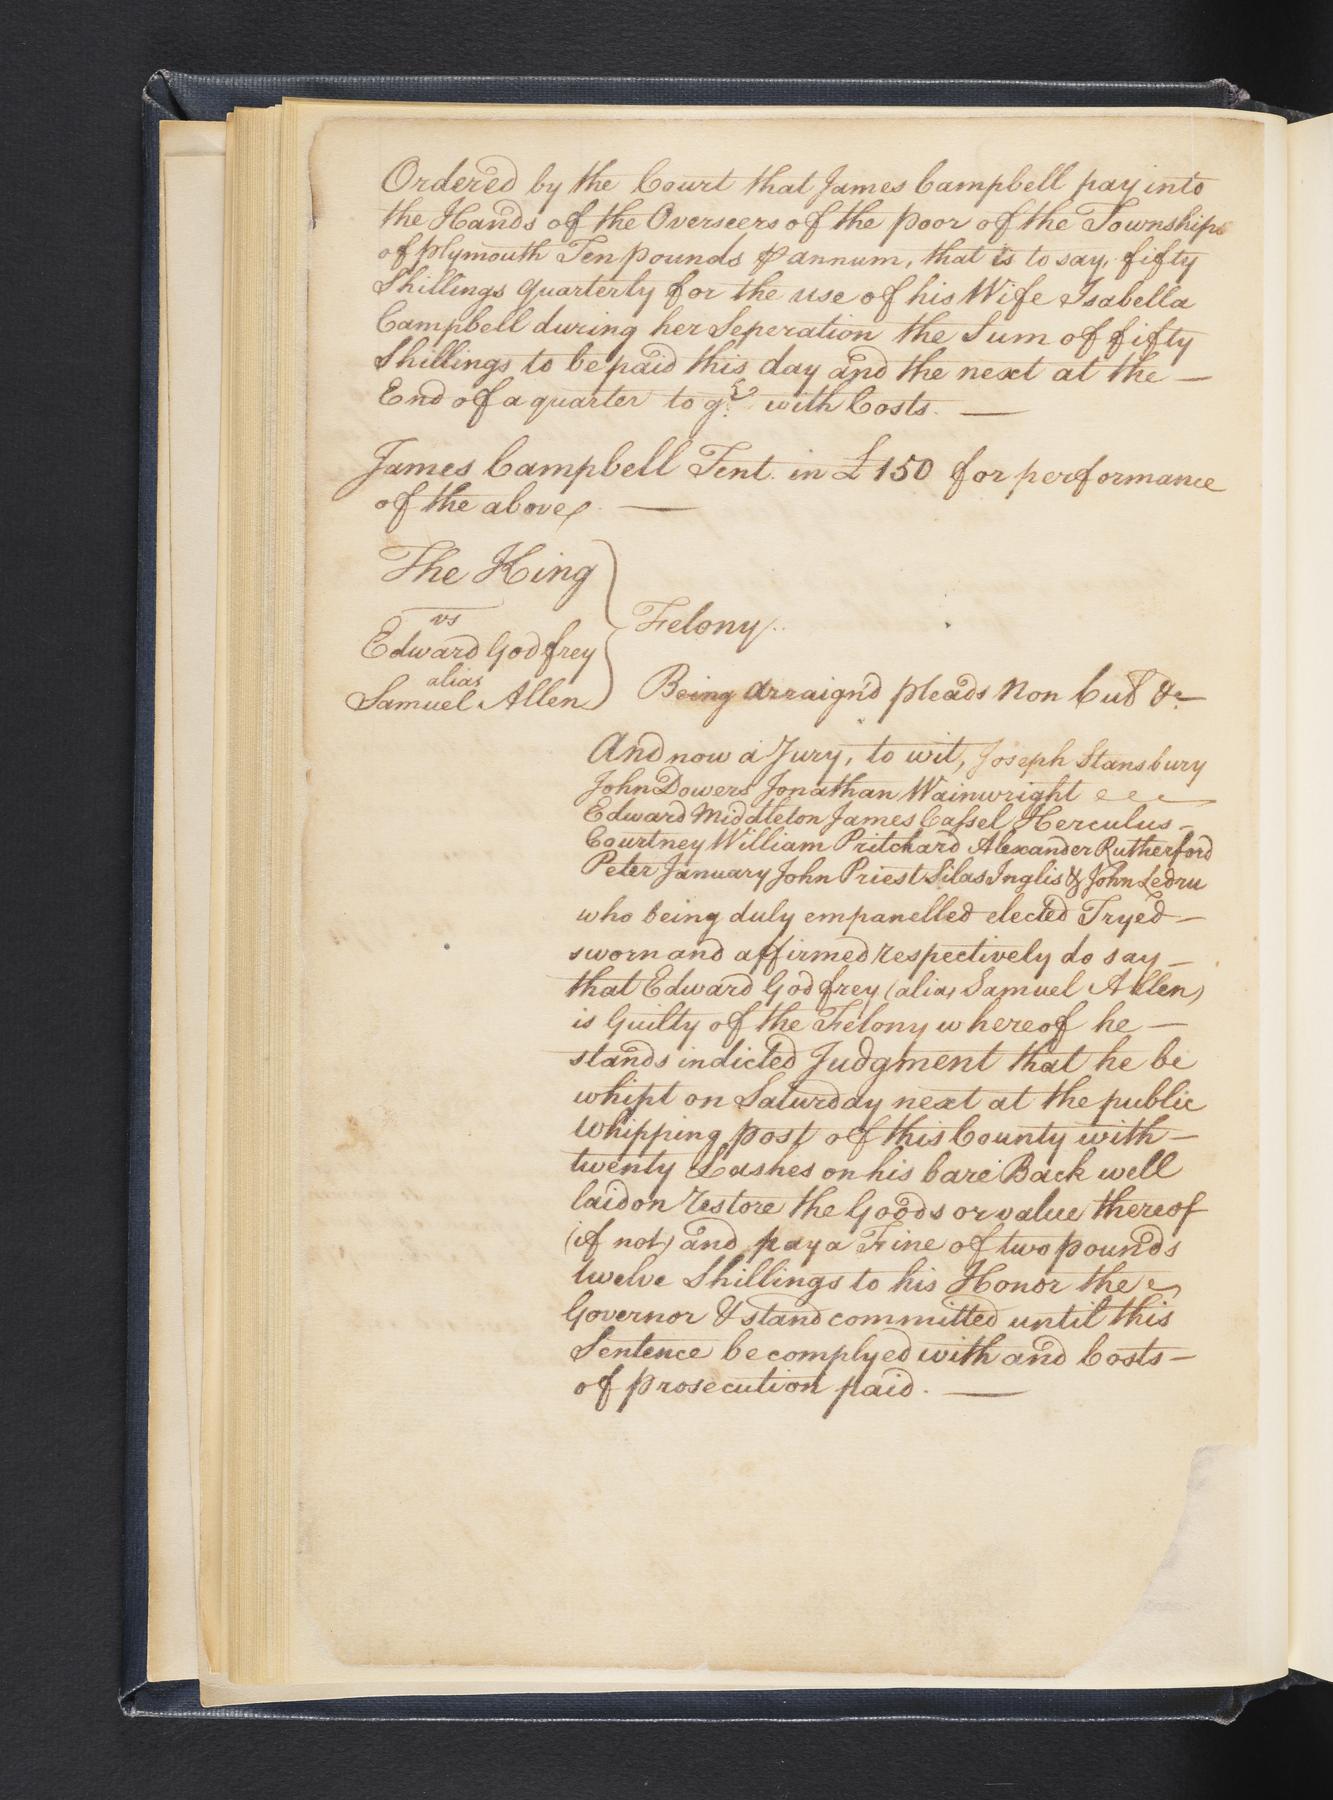 Ordered by the Court that James Campbell pay into
the Hands of the Overseers of the poor of the Townships
of plymouth Ten pounds ⅌ annum, that is to say, fifty
Shillings quarterly for the use of his Wife Isabella
Campbell during her Seperation the Sum of fifty
Shillings to be paid this day and the next at the —
End of a quarter to with Costs. —
James Campbell Tent. in £150 for performance
of the above. —
The King
vs
Edward Godfrey
alias
Samuel Allen
Felony.
Being Arraign'd pleads Non Cul &c —
And now a Jury, to wit, Joseph Stansbury
John Dowers Jonathan Wainwright
Edward Middleton James Cassel Herculus —
Courtney William Pritchard Alexander Rutherford
Peter January John Priest Silas Inglis & John Ledru
who being duly empanelled elected Tryed —
sworn and affirmed respectively do say —
that Edward Godfrey (alias Samuel Allen)
is Guilty of the Felony whereof he —
stands indicted Judgment that he be
whipt on Saturday next at the public
Whipping post of this County with —
twenty Lashes on his bare Back well
laid on restore the Goods or value thereof
(if not) and pay a Fine of two pounds
twelve Shillings to his Honor the
Governor & stand committed until this
Sentence be complyed with and Costs —
of prosecution paid. —